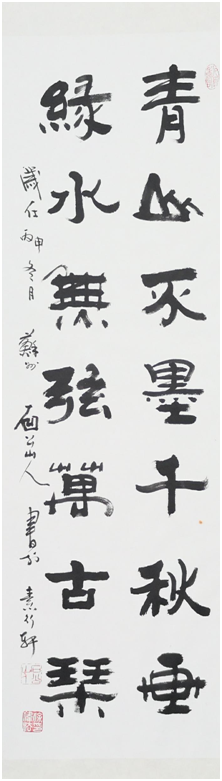 青山不墨千秋画
緑水無弦萬古琴
歲在丙申冬月 蘇州 山人 書於 素行軒